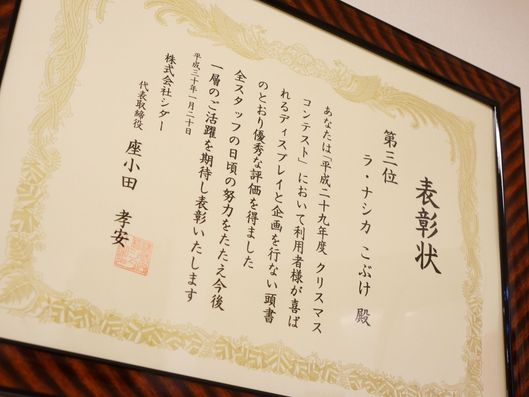 表彰状
第三位
ラ・ナシカ こぶけ 殿
あなたは「平成二十九年度 クリスマス
コンテスト」において利用者様が喜ば
れるディスプレイと企画を行ない頭書
のとおり優秀な評価を得ました
全スタッフの日頃の努力をたたえ今後
一層のご活躍を期待し表彰いたします
平成三十年一月二十日
株式会社シダー
代表取締役 座小田 孝安